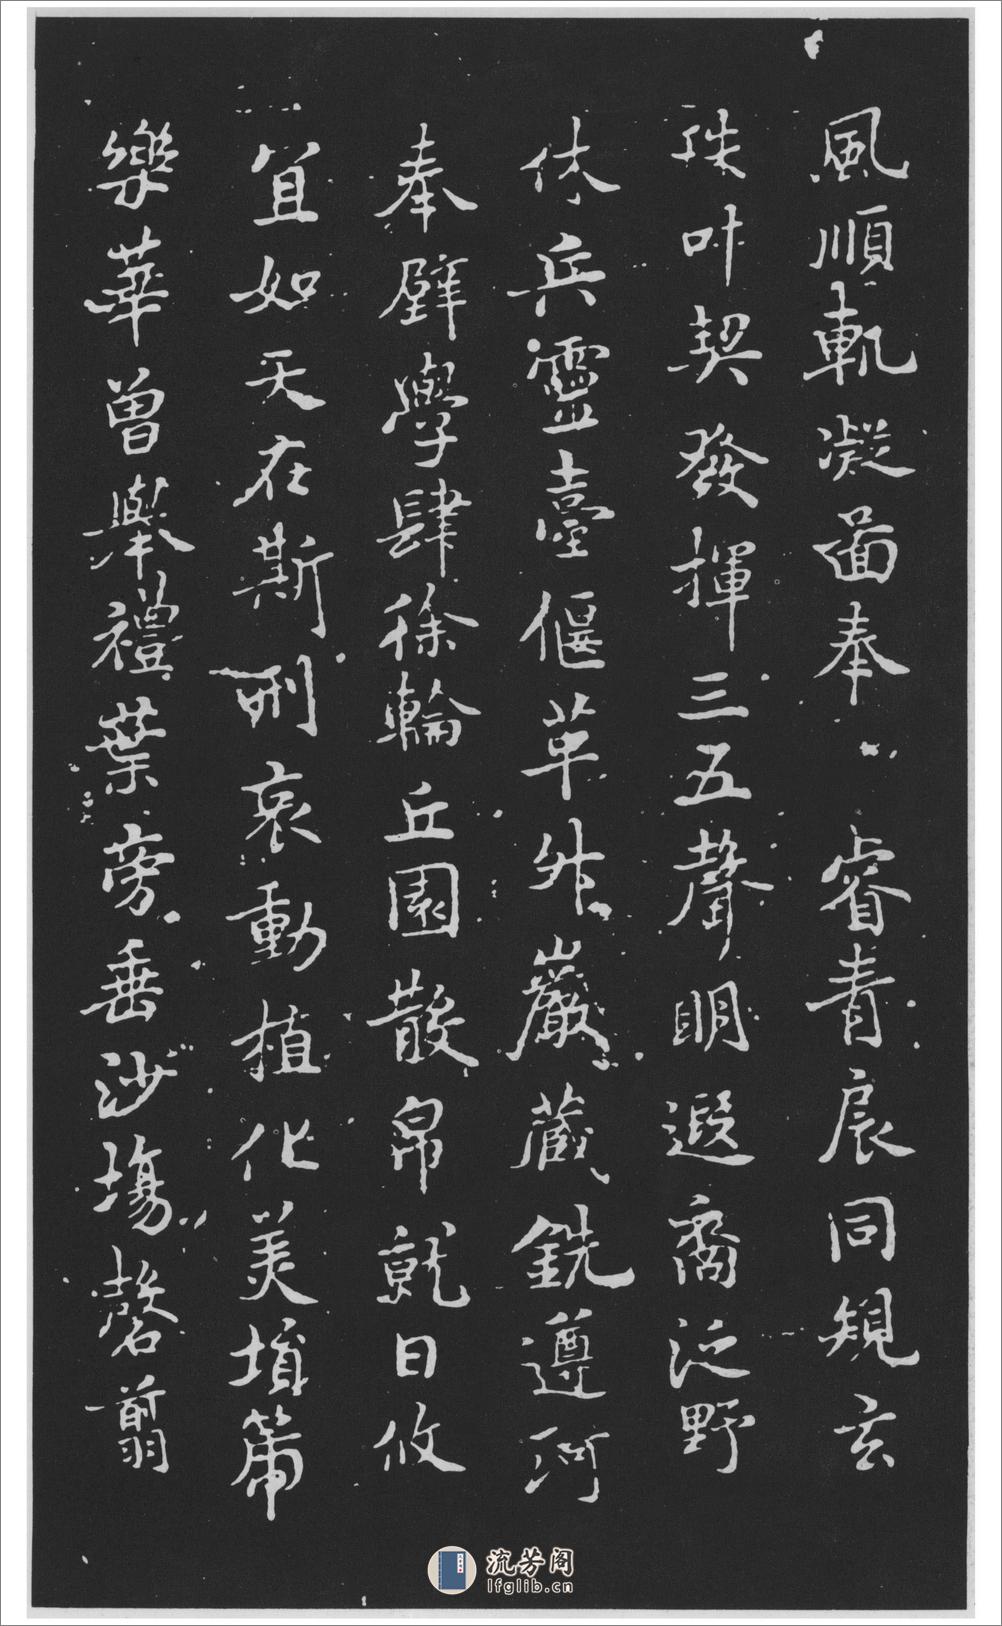 風順軌凝圖奉睿青扆同規玄
珠叶契發揮三五聲明遐裔泛野
休兵靈臺偃革升巖藏銑遵河
奉璧學肆徐輪丘園散帛就日攸
宜如天在斯刑哀動植化美塤箎
樂華曾舉禮葉旁垂沙場罄翦
流芳阁
lfglib.cn